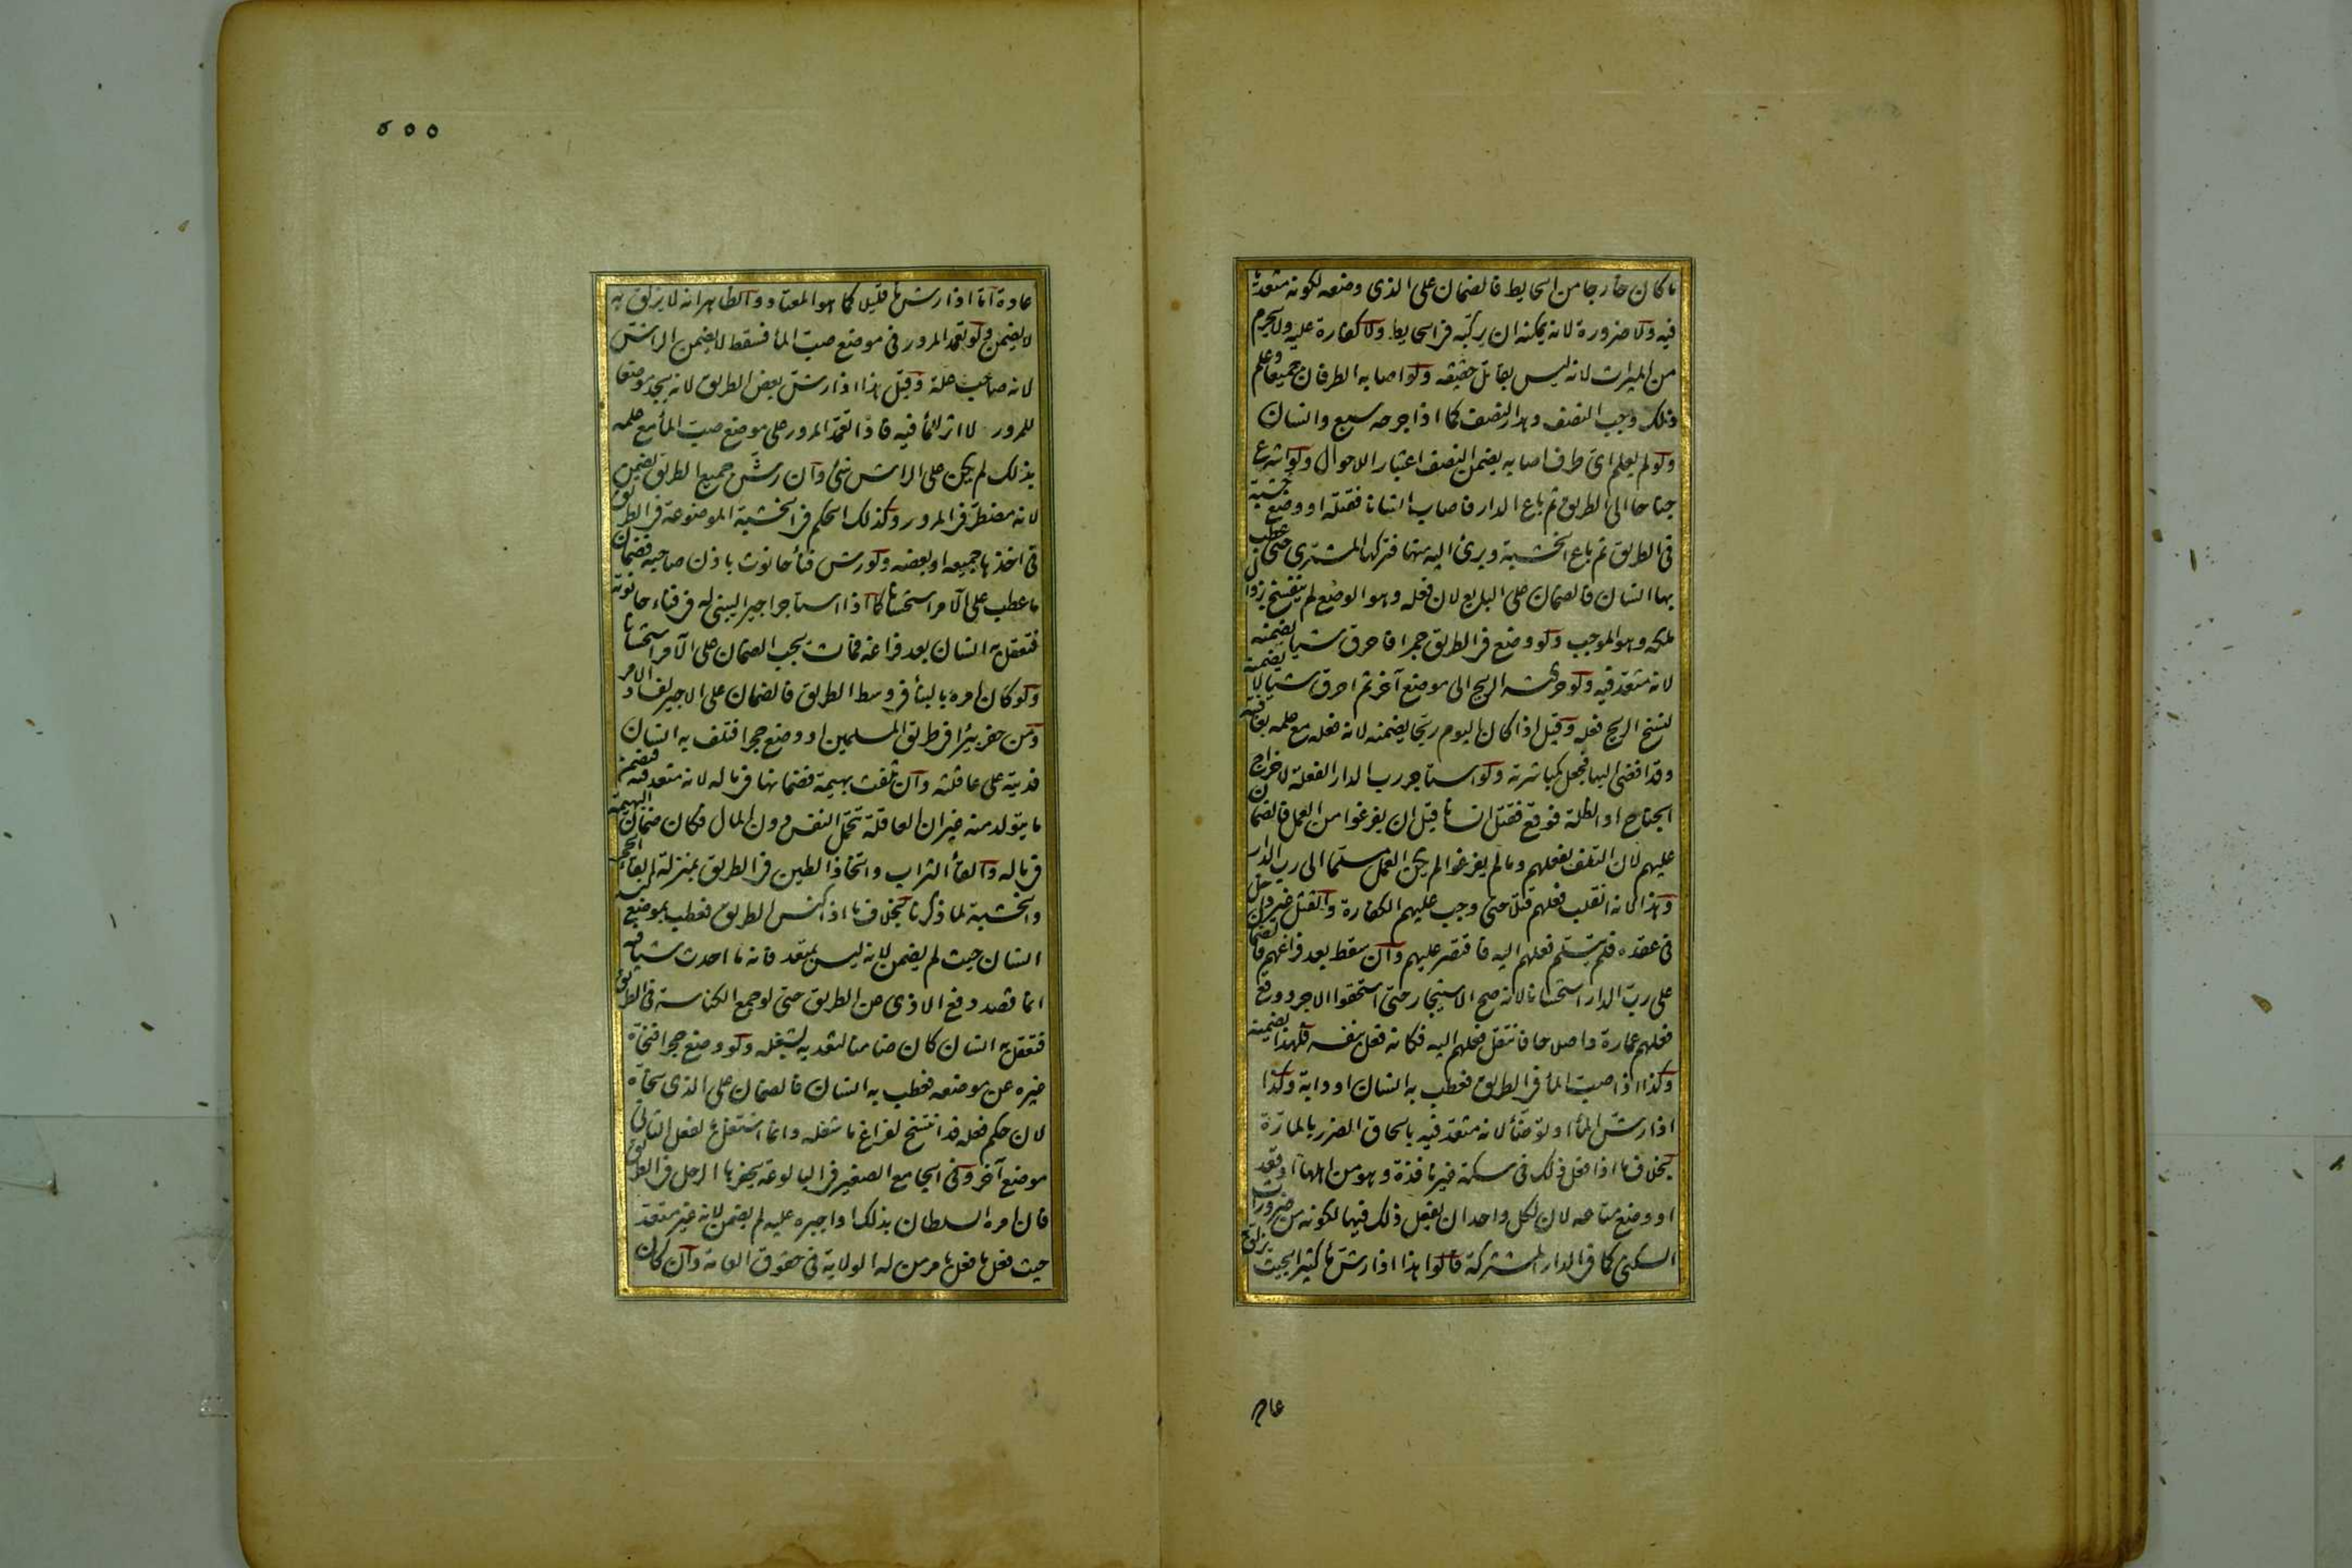 ما كان خارجا من الحايط فالضمان على الذى وضعه لكونه متعديا
فيه ولا ضرورة لانه يمكنه ان يركبه فى الحايط ولا كفارة عليه ولا يحرم
من الميراث لانه ليس بقاتل حقيقه ولو اصابه الطرفان جميعا وعلم
ذلك وجب النصف وهدر النصف كما اذا جرحه سبع وانسان
ولو لم يعلم اى طرف اصابه يضمن النصف اعتبار اللاحوال ولو اشرع
جناحا الى الطريق ثم باع الدار فاصاب انسانا فقتله او وضع خشبة
فى الطريق ثم باع الخشبة وبرئ اليه منها فتركها المشترى حتى عطب
بها انسان فالضمان على البايع لان فعله وهو الوضع لم ينفسخ بزوال
ملكه وهو الموجب ولو وضع فى الطريق جمرا فاحرق شيا يضمنه
لانه متعد فيه ولو حركته الريح الى موضع آخر ثم احرق شيا لا يضمنه
لفسخ الريح فعله وقيل اذا كان اليوم ريحا يضمنه لانه فعله مع علمه بعاقبته
وقد افضى اليها فجعل كمباشرته ولو استاجر رب الدار الفعلة لاخراج
الجناح او الظلة فوقع فقتل انسانا قبل ان يفرغوا من العمل فالضمان
عليهم لان التلف بفعلهم وما لم يفرغوا لم يكن العمل مسلما الى رب الدار
وهذا لانه انقلب فعلهم قتلا حتى وجب عليهم الكفارة والقتل غير داخل
فى عقده فلم يتسلم فعلهم اليه فاقتصر عليهم وان سقط بعد فراغهم فالضمان
على رب الدار استحسانا لانه صح الاستيجار حتى استحقوا الاجر ووقع
فعلهم عمارة واصلاحا فانتقل فعلهم اليه فكانه فعل بنفسه فلهذا يضمنه
وكذا اذا صب الماء فى الطريق فعطب به انسان او دابة وكذا
اذا رش الماء او توضأ لانه متعد فيه بالحاق الضرر بالمارة
بخلاف ما اذا فعل ذلك فى سكة غير نافذة وهو من اهلها او قعد
او وضع متاعه لان لكل واحد ان يفعل ذلك فيها لكونه من ضرورات
السكنى كما فى الدار المشتركة قالوا هذا اذا رش ما كثيرا بحيث يزلق به
عادة
٥٥٥
عادة اما اذا رش ما قليلا كما هو المعتاد والظاهر انه لا يزلق به
لا يضمن ولو تعمد المرور فى موضع صب الماء فسقط لا يضمن الراش
لانه صاحب علة وقيل هذا اذا رش بعض الطريق لانه يجد موضعا
للمرور لا اثر للماء فيه فاذا تعمد المرور على موضع صب الماء مع علمه
بذلك لم يكن على الراش شئ وان رش جميع الطريق يضمن
لانه مضطر فى المرور وكذلك الحكم فى الخشبة الموضوعة فى الطريق
فى اخذها جميعه او بعضه ولو رش فناء حانوت باذن صاحبه فضمان
ما عطب على الآمر استحسانا كما اذا استاجر اجيرا ليبنى له فى فناء حانوته
فتعقل به انسان بعد فراغه فمات يجب الضمان على الآمر استحسانا
ولو كان امره بالبناء فى وسط الطريق فالضمان على الاجير لفساد الامر
ومن حفر بئرا فى طريق المسلمين او وضع حجرا فتلف به انسان
فديته على عاقلته وان تلفت بهيمة فضمانها فى ماله لانه متعد فيه فيضمن
ما يتولد منه غير ان العاقلة تتحمل النفس دون المال فكان ضمان البهيمة
فى ماله والقاء التراب واتخاذ الطين فى الطريق بمنزلة القاء الحجر
والخشبة لما ذكرنا بخلاف ما اذا كنس الطريق فعطب بموضع كنسه
انسان حيث لم يضمن لانه ليس بمتعد فانه ما احدث شيا فيه
انما قصد دفع الاذى عن الطريق حتى لو جمع الكناسة فى الطريق
فتعقل به انسان كان ضامنا لتعديه بشغله ولو وضع حجرا فنحاه
غيره عن موضعه فعطب به انسان فالضمان على الذى نحاه
لان حكم فعله قد انتسخ لفراغ ما شغله وانما اشتغل بالفعل الثانى
موضع آخر وفى الجامع الصغير فى البالوعة يحفرها الرجل فى الطريق
فان امره السلطان بذلك او اجبره عليه لم يضمن لانه غير متعد
حيث فعل ما فعل بامر من له الولاية فى حقوق العامة وان كان